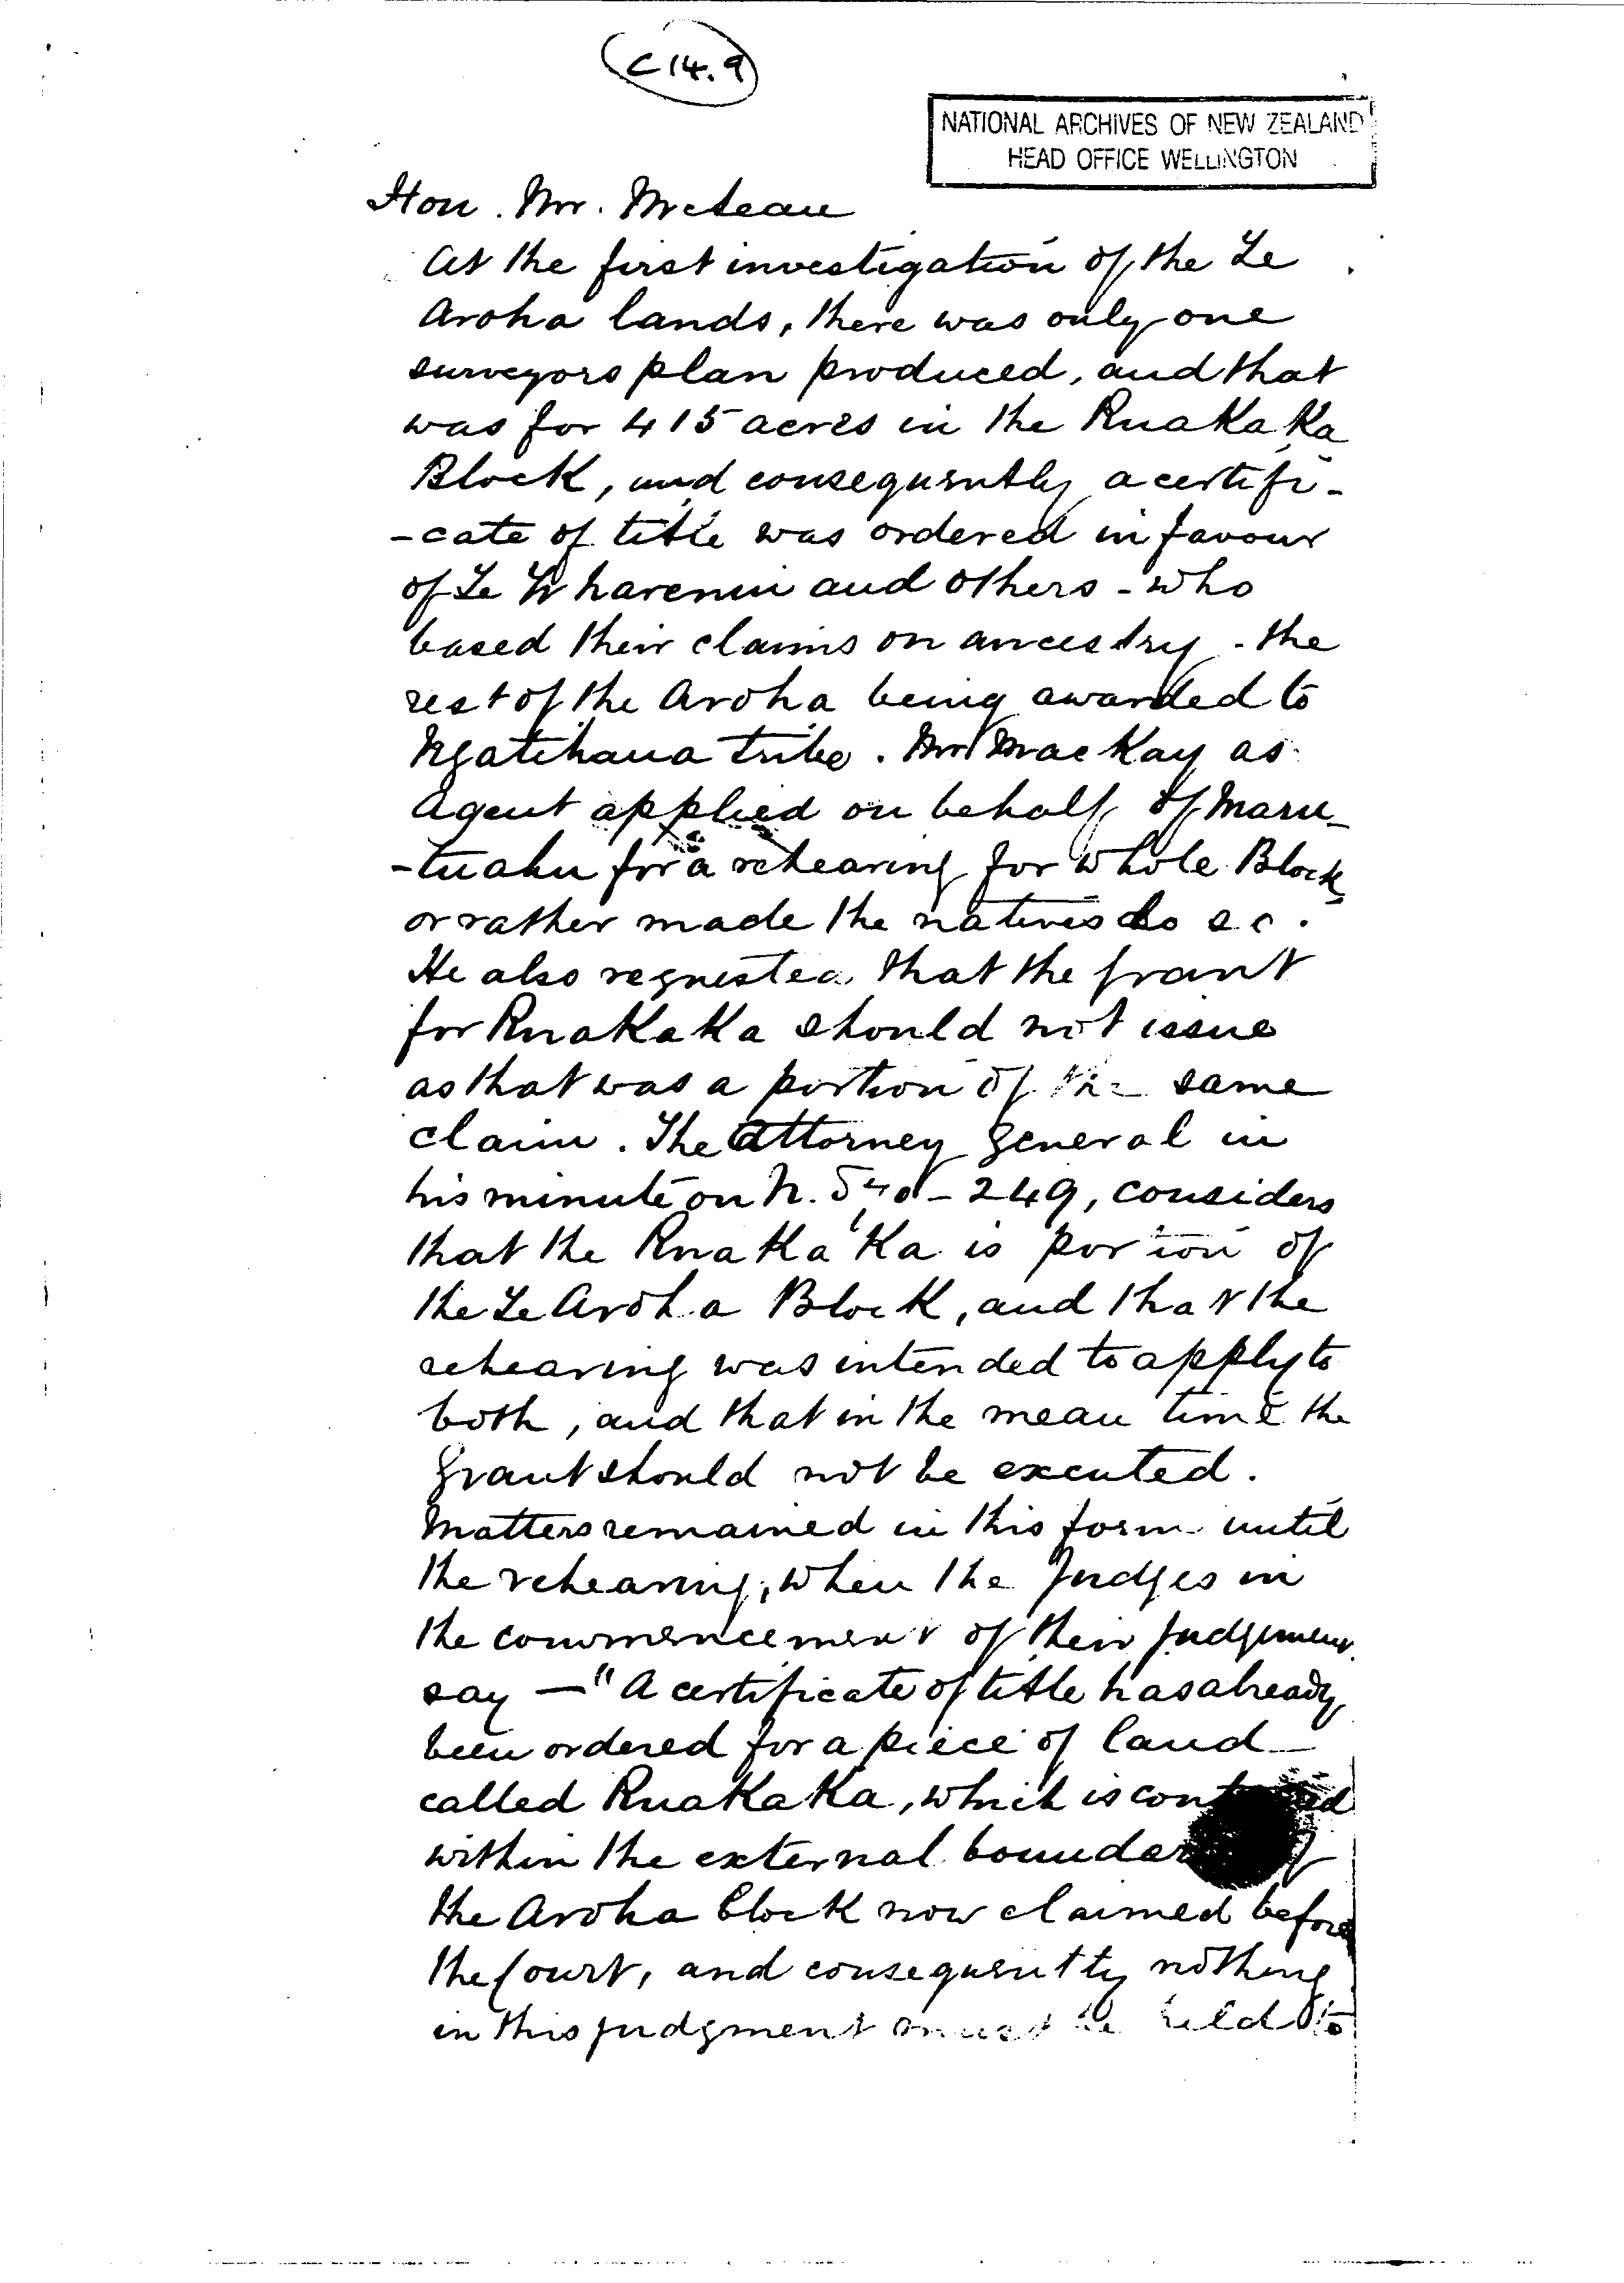 C 14. 9
NATIONAL ARCHIVES OF NEW ZEALAND
HEAD OFFICE WELLINGTON
Hon. Mr. McLean
At the first investigation of the Te
Aroha lands, there was only one
surveyors plan produced, and that
was for 415 acres in the Ruakaka
Block, and consequently a certifi-
-cate of title was ordered in favour
of Te Wharenui and others - who
based their claims on ancestry - the
rest of the Aroha being awarded to
Ngatihaua tribe. Mr MacKay as
Agent applied on behalf of Maru-
-tuahu for a rehearing for whole Block
or rather made the natives do so.
He also requested that the grant
for Ruakaka should not issue
as that was a portion of the same
claim. The Attorney General in
his minute on N. - 249, considers
that the Ruakaka is portion of
the Te Aroha Block, and that the
rehearing was intended to apply to
both, and that in the mean time the
grant should not be executed.
Matters remained in this form until
the rehearing, when the Judges in
the commencement of their judgement
say — "A certificate of title has already
been ordered for a piece of land
called Ruakaka, which is contained
within the external of
the Aroha block now claimed before
the Court, and consequently nothing
in this judgment must be held to